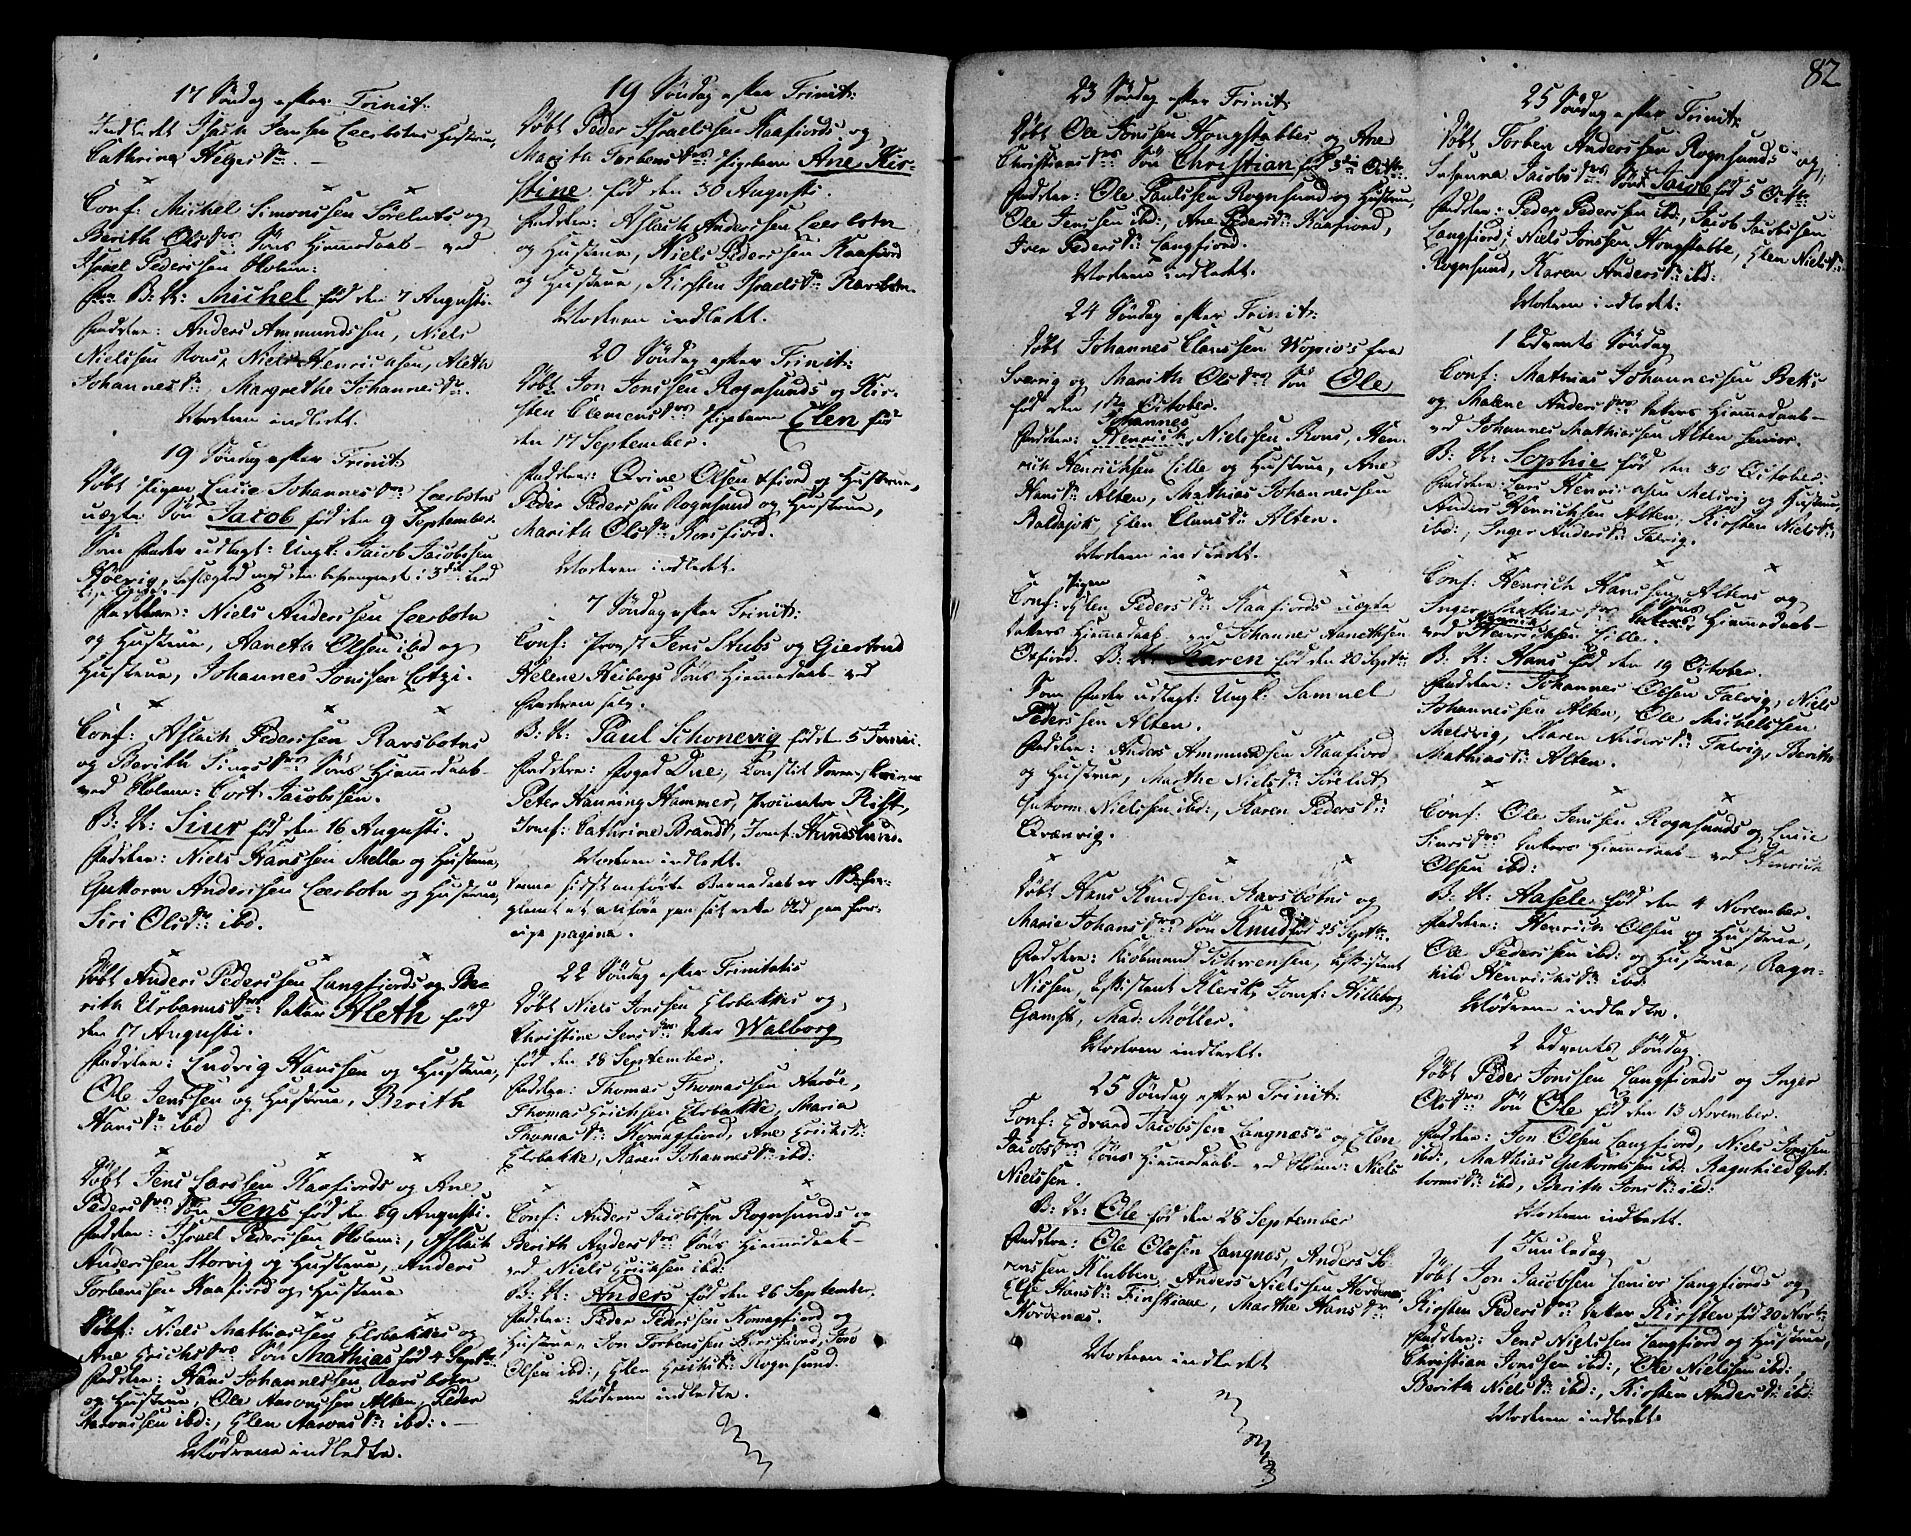 17 Søndag efter Trinit:
Indledet Isach Jensen Leerbotns Hustrue,
Cathrina Helgesdr
Conf: Michel Simonssen Sørelvts og
Berith Olsdrs Søns Hiemmedaab ved
Israel Pederssen Holm:
B: N: Michel fød den 7 Augusti.
Faddere: Anders Ammundssen, Niels
Nielssen Rons, Niels Henrichsen, Aleth
Johannesdr: Margrethe Johannesdr:
Moderen indledet.
19 Søndag efter Trinit:
Døbt Pigen Lucie Johannesdrs Leerbotns
uægte Søn Jacob fød den 9 September
Som Fader udlagt: Ungk: Jacob Jacobssen
beslægted med den besvangrede i 3die Led
Faddere: Niels Anderssen Leerbotn
og Hustrue, Aaneth Olsen ibd og
Hustrue, Johannes Jonssen
Conf: Aslach Pederssen Ravsbotns
og Berith Simonsdrs Søns Hiemmedaab
ved Holm: Cort Jacobssen.
B: N: Siur fød den 16 Augusti.
Faddere: Niels Hanssen Melle og Hustrue,
Guttorm Anderssen Leerbotn og Hustrue,
Siri Olsdr: ibd.
Døbt Anders Pederssen Langfiords og Be-
rith Urbanusdrs Datter Aleth fød
den 17 Augusti.
Faddere: Ludvig Hanssen og Hustrue,
Ole Jenssen og Hustrue, Berith
Hansdr: ibd
Døbt Jens Larssen Kaafiords og Ane
Pedersdrs Søn Jens fød den 29 Augusti.
Faddere: Israel Pederssen Holm:, Aslach
Anderssen Storvig og Hustrue, Anders
Torbenssen Kaafiord og Hustrue
Døbt: Niels Mathiassen Elvebakkes og
Ane Erichsdrs Søn Mathias fød 4 Septbr:
Faddere: Hans Johannessen Aarsbotn
og Hustrue, Ole Aaronssen Alten, Peder
Aaronssen ibd:, Elen Aaronsdr: ibd:
Mødrene indledte.
19 Søndag efter Trinit:
Døbt Peder Israelssen Kaafiords og
Marith Torbensdrs Pigebarn Ane Kir-
stine fød den 30 Augusti.
Faddere: Aslach Anderssen Leerbotn
og Hustrue, Niels Pederssen Kaafiord
og Hustrue, Kirsten Israelsdr: Ravsbotn.
Moderen indledet.
20 Søndag efter Trinit:
Døbt Jon Jonssen Rognsunds og Kir-
sten Clemensdrs Pigebarn Elen fød
den 17 September.
Faddere: Qvine Olsen Oxfiord og Hustrue,
Peder Pederssen Rognsund og Hustrue,
Marith Olsdr: Korsfiord.
Moderen indledet.
7 Søndag efter Trinit:
Conf: Provst Jens Stubs og Giertrud
Helene Heibergs Søns Hiemmedaab ved
Faderen selv.
B: N: Paul Schonevig fød den 5 Junii.
Faddere: Foged Due, Constit Sorenskriver
Peter Hanning Hammer, Procurator Rist,
Jomf: Cathrine Brandt, Jomf: Hundslund.
Moderen indledet.
Denne sidst anførte Barnedaab er for-
glemt at anføre paa sit rette Sted paa for-
rige pagina.
22 Søndag efter Trinitatis
Døbt Niels Jonssen Elvebakkes og
Christine Jensdrs Datter Walborg
fød den 28 September.
Faddere: Thomas Thomassen Aarøe,
Thomas Erichsen Elvebakke, Maria
Thomasdr: Komagfiord, Ane Erichsdr:
Elvebakke, Karen Johannesdr: ibd:
Conf: Anders Jacobssen Rognsunds og
Berith Andersdrs Søns Hiemmedaab
ved Niels Erichsen ibd:
B: N: Anders fød den 26 September.
Faddere: Peder Pederssen Komagfiord og
Hustrue, Jon Torbenssen Korsfiord, Iver
Olsen ibd:, Elen Erichsdr: Rognsund.
Mødrene indledte.
82
23 Søndag efter Trinit:
Døbt Ole Jonssen Kongstabbes og Ane
Christiansdrs Søn Christian fød 3die Octbr
Faddere: Ole Paulssen Rognsund og Hustrue,
Ole Jenssen ibd:, Ane Pedersdr: Kaafiord,
Iver Pedersdr: Langfiord.
Moderen indledet.
24 Søndag efter Trinit:
Døbt Johannes Clemssen Woppio's fra
Sverrig og Marith Olsdrs Søn Ole
fød den 1ste October.
Johannes
Faddere: Henrich Nielssen Rons, Hen-
rich Henrichsen Lille og Hustrue, Ane
Hansdr: Alten, Mathias Johannessen
Baldojok, Elen Clemsdr: Alten.
Moderen indledet.
Pigen
Conf: Elen Pedersdr: Kaafiords uægte
Datters Hiemmedaab ved Johannes Aanethsen
Oxfiord. B: N: Karen fød den 20 Septbr:
Som Fader udlagt: Ungk: Samuel
Pederssen Alten.
Faddere: Anders Ammundssen Kaafiord
og Hustrue, Marthe Nielsdr: Sørelvt,
Guttorm Nielssen ibd:, Karen Pedersdr:
Qvænvig.
Døbt Hans Knudssen Aarsbotns og
Marie Johansdrs Søn Knud fød 25 Septbr:
Faddere: Kiøbmand Schwensen, Assistent
Nissen, Assistent Klerck, Jomf: Hilleborg
Gamst, Mad: Møller.
Moderen indledet.
25 Søndag efter Trinit:
Conf: Edvard Jacobssen Langnæss og Elen
Jacobsdrs Søns Hiemmedaab ved Holm: Niels
Nielssen.
B: N: Ole fød den 28 September
Faddere: Ole Olssen Langnæs, Anders Sø-
renssen Klubben, Anders Nielssen Nordenæs
Else Hansdr: Finskiane, Marthe Hansdr
Nordenæs.
Moderen indledet
25 Søndag efter Trinit:
Døbt Torben Anderssen Rognsunds og
Susanna Jacobsdrs Søn Jacob fød 5 Octbr
Faddere: Peder Pederssen ibd:, Jacob Jacobssen
Langfiord, Niels Jonssen Kongstabbe, Elen Nielsdr:
Rognsund, Karen Andersdr: ibd:
Moderen indledet:
1 Advents Søndag
Conf: Mathias Johannessen Beks
og Malene Andersdrs Datters Hiemmedaab
ved Johannes Mathiassen Alten Senior.
B: N: Sophie fød den 30 October.
Faddere: Lars Henrichsen Melsvig og Hustrue,
Anders Henrichsen Alten, Kirsten Nielsdr:
ibd:, Inger Andersdr: Talvig.
Conf: Henrich Hanssen Altens og
Inger Mathiasdrs Søns Hiemmedaab
ved Henrich Henrichsen Lille.
B: N: Hans fød den 19 October.
Faddere: Johannes Olsen Talvig, Niels
Johannessen Alten, Ole Michelssen
Melsvig, Karen Andersdr: Talvig, Berith
Mathiasdr: Alten.
Conf: Ole Jenssen Rognsunds og Lucie
Simonsdrs Datters Hiemmedaab ved Henrich
Olsen ibd:
B: N: Aasele fød den 4 November.
Faddere: Henrich Olsen og Hustrue,
Ole Pederssen ibd: og Hustrue, Ragn-
hild Henrichsdr: ibd:
Mødrene indledte.
2 Advents Søndag.
Døbt Peder Jonssen Langfiords og Inger
Olsdrs Søn Ole fød den 13 November.
Faddere: Jon Olsen Langfiord, Niels Jonssen
ibd:, Mathias Guttormssen ibd: Ragnhild Gut-
tormsdr: ibd, Berith Jonsdr: ibd:
Moderen indledet.
1 Juuledag
Døbt Jon Jacobssen Senior Langfiords og
Kirsten Pedersdrs Datter Kirsten fød 20 Novbr:
Faddere: Jens Nielssen Langfiord og Hustrue,
Christian Jonssen ibd:, Ole Nielssen ibd:,
Berith Nielsdr: ibd:, Kirsten Andersdr: ibd:
Moderen indledet